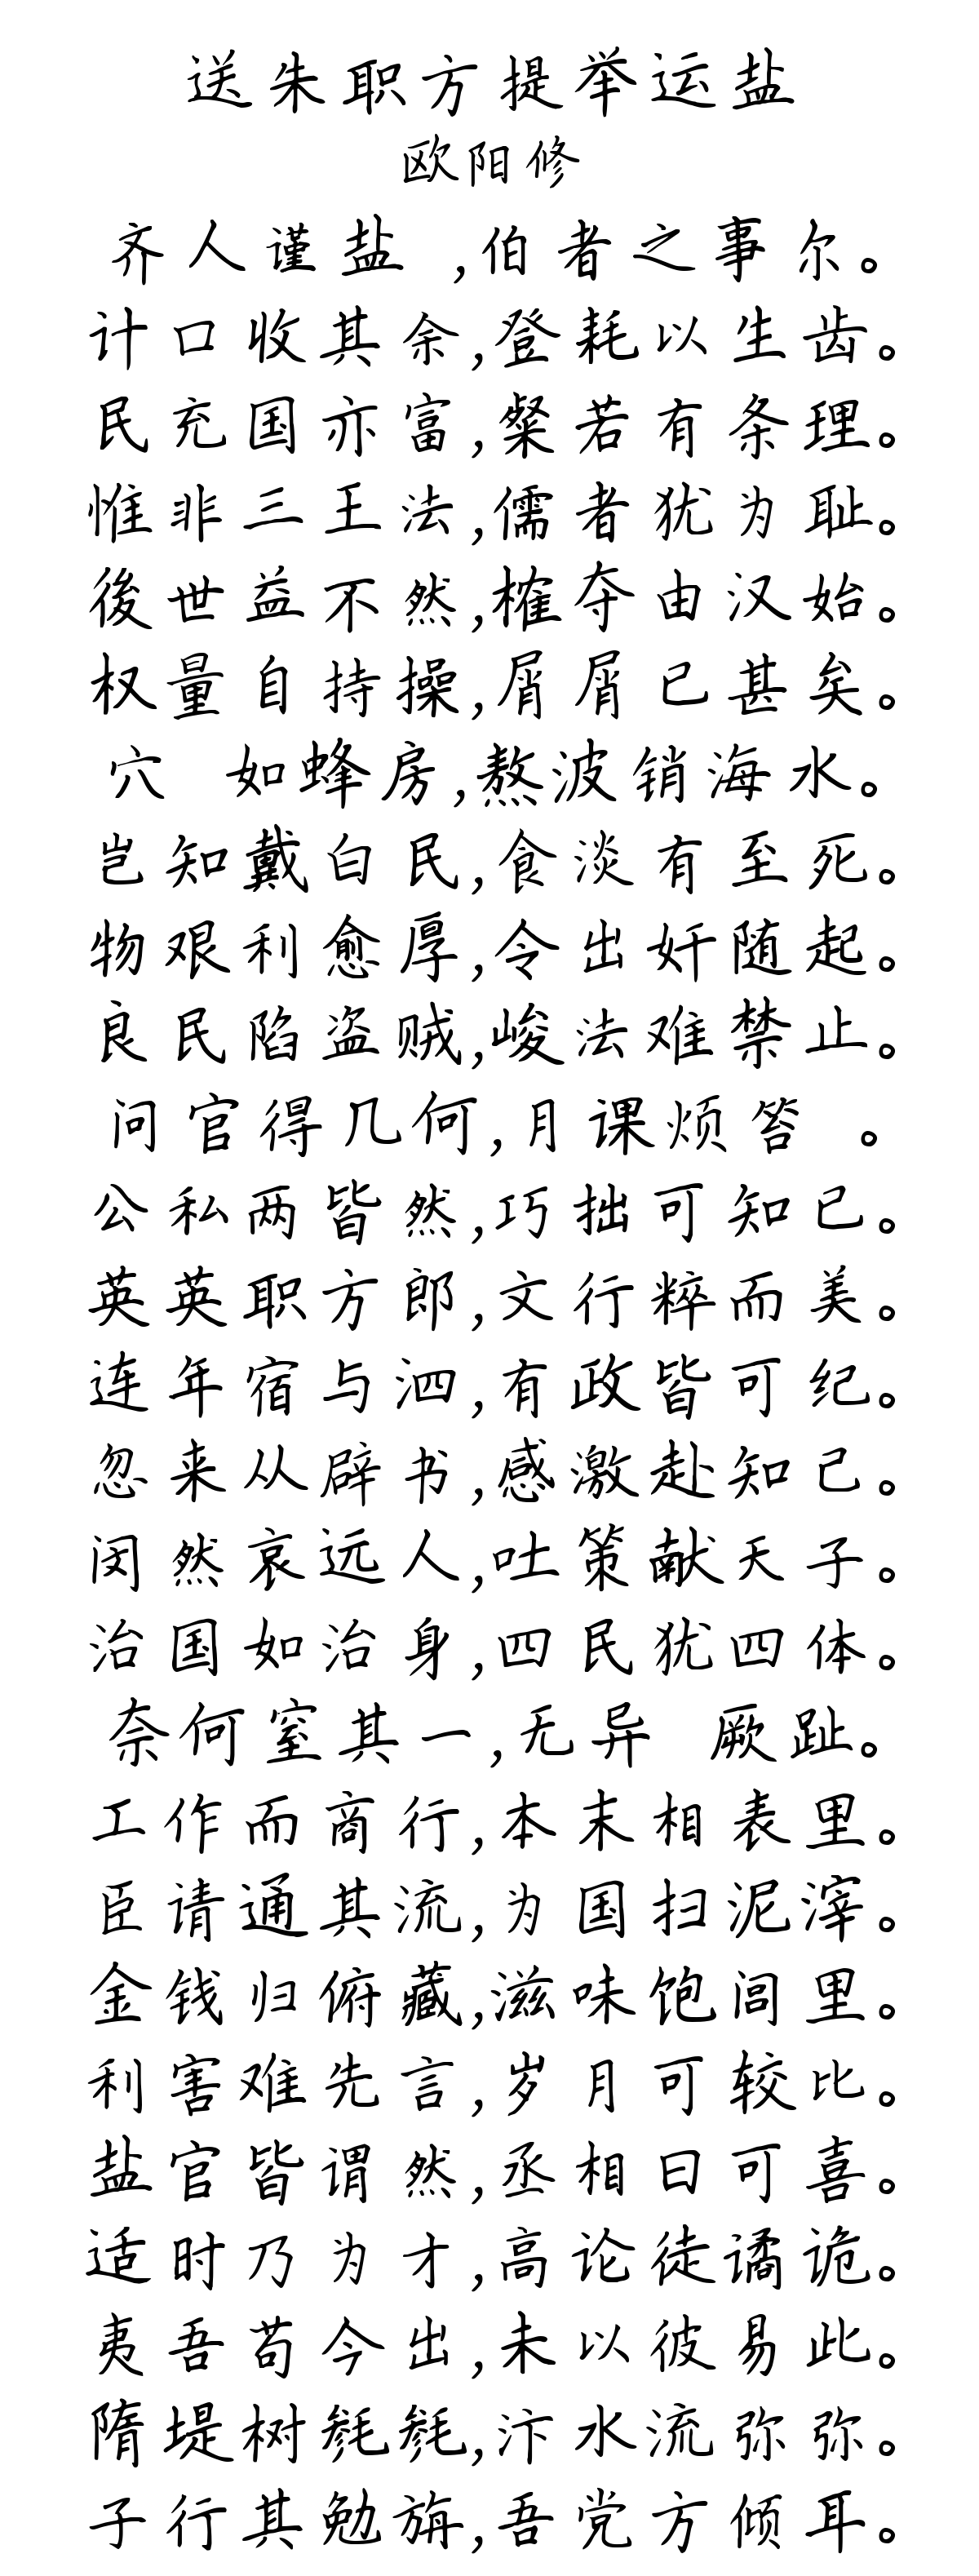 送朱职方提举运盐
欧阳修
齐人谨盐 ,伯者之事尔。
计口收其余,登耗以生齿。
民充国亦富,粲若有条理。
惟非三王法,儒者犹为耻。
後世益不然,榷夺由汉始。
权量自持操,屑屑已甚矣。
穴 如蜂房,熬波销海水。
岂知戴白民,食淡有至死。
物艰利愈厚,令出奸随起。
良民陷盗贼,峻法难禁止。
问官得几何,月课烦笞 。
公私两皆然,巧拙可知已。
英英职方郎,文行粹而美。
连年宿与泗,有政皆可纪。
忽来从辟书,感激赴知己。
闵然哀远人,吐策献天子。
治国如治身,四民犹四体。
奈何窒其一,无异 厥趾。
工作而商行,本末相表里。
臣请通其流,为国扫泥滓。
金钱归俯藏,滋味饱闾里。
利害难先言,岁月可较比。
盐官皆谓然,丞相曰可喜。
适时乃为才,高论徒谲诡。
夷吾苟今出,未以彼易此。
隋堤树毵毵,汴水流弥弥。
子行其勉旃,吾党方倾耳。